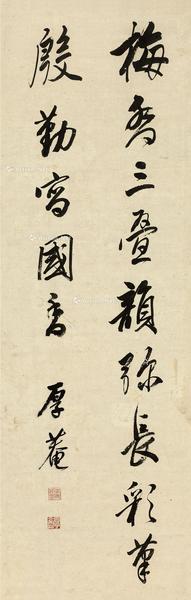 梅香三疊韻彌長彩筆
殷勤寫國香
厚菴